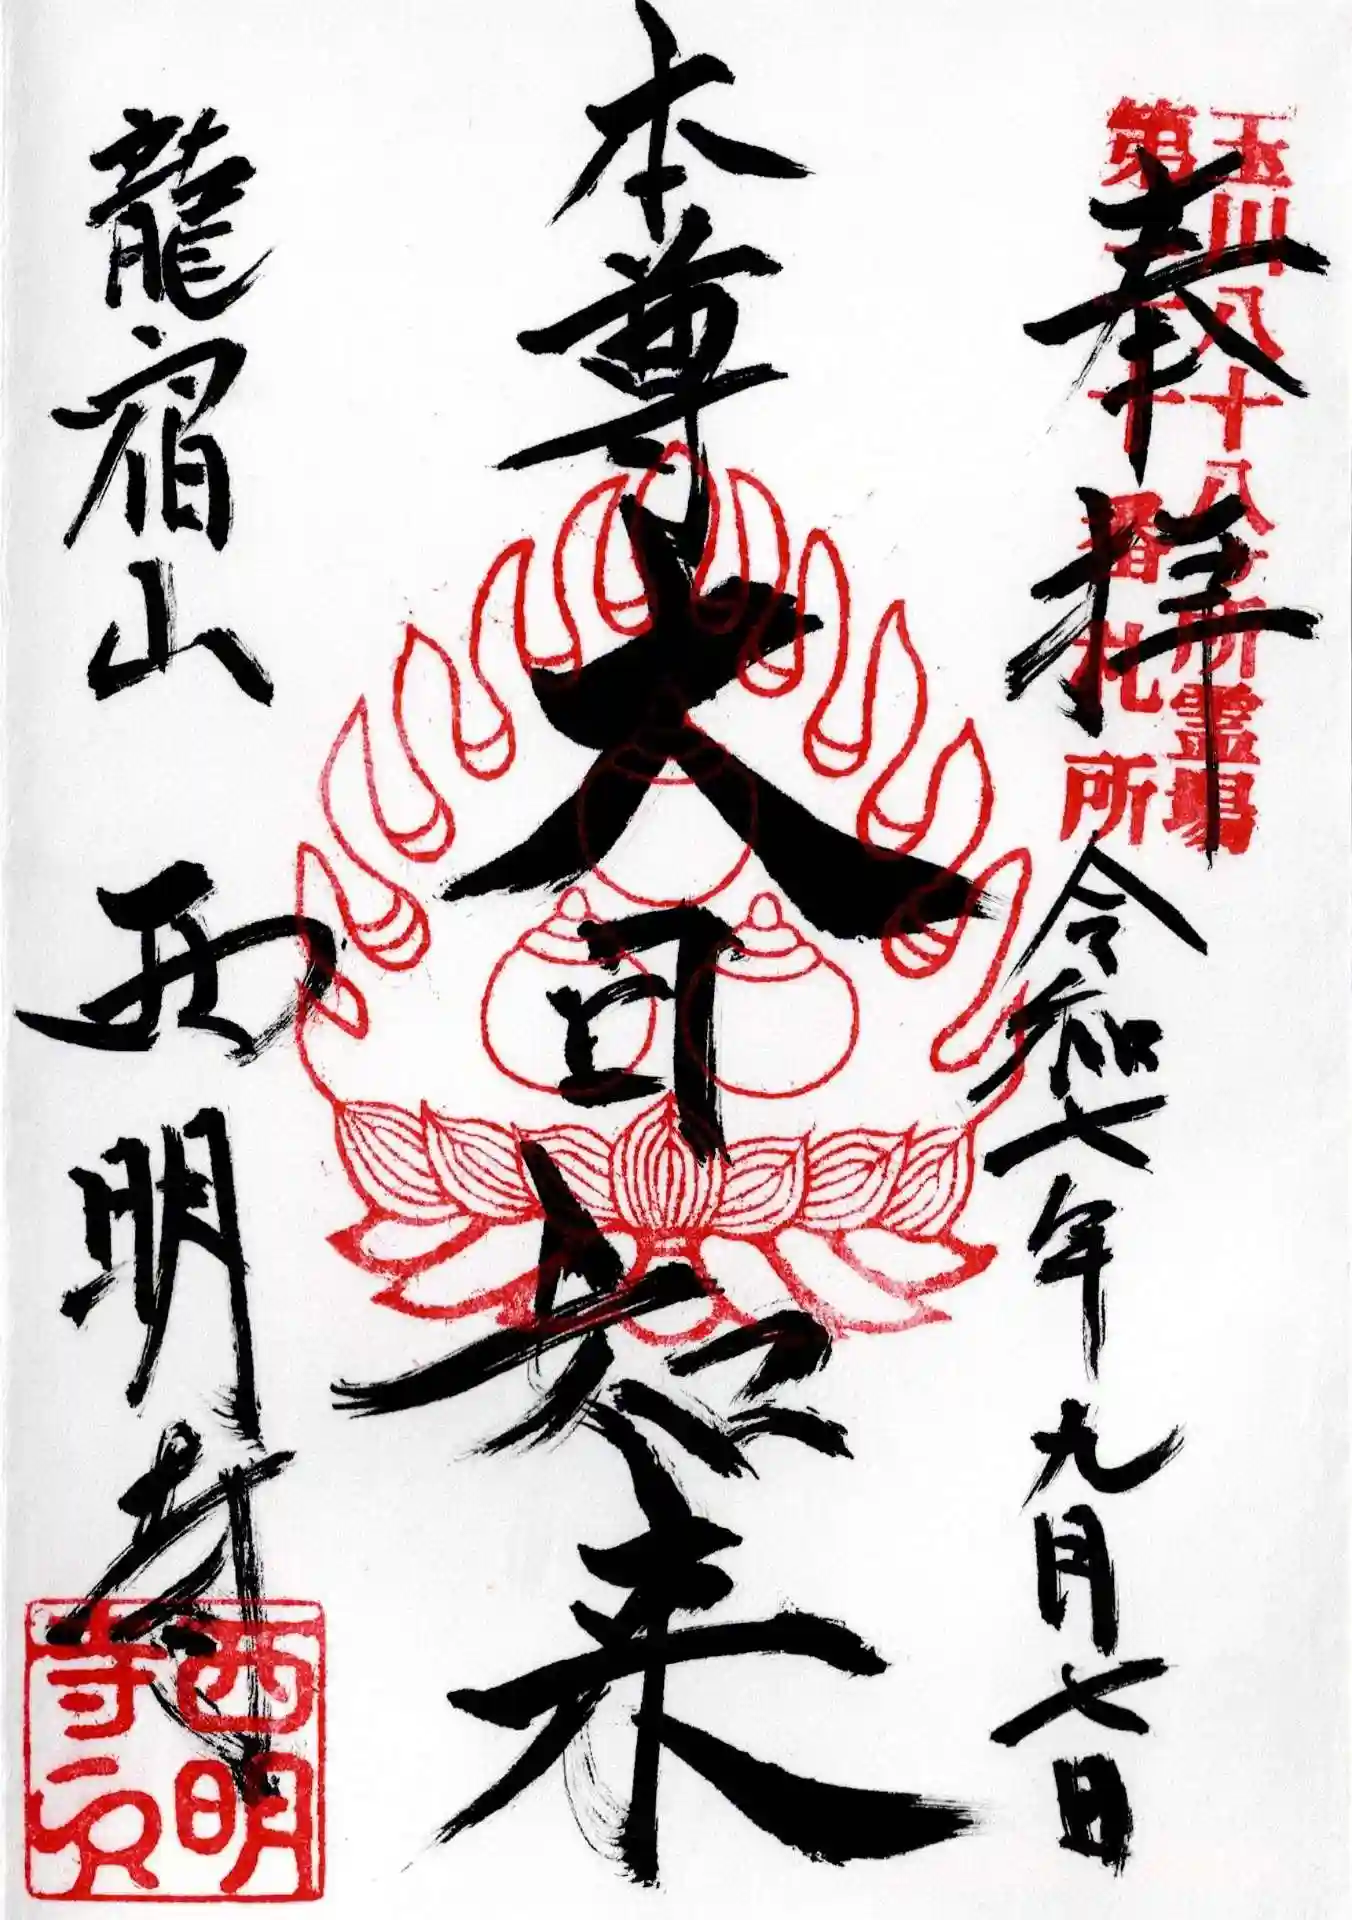 玉川八十八ヶ所霊場
第 十番札所
奉拝 令和七年九月七日
本尊大日如来
龍宿山 西明寺
西明
寺印